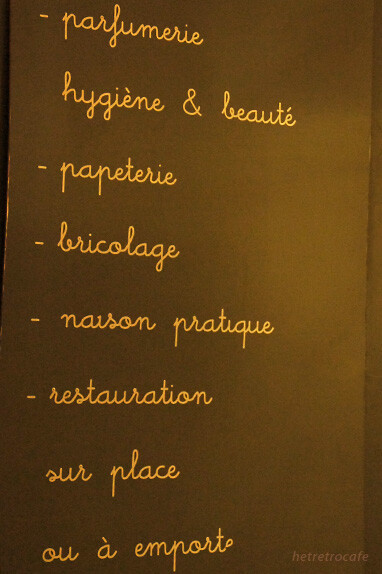 - parfumerie
hygiène & beauté
- papeterie
- bricolage
- naison pratique
- restauration
sur place
ou à emporte
hetretrocafe